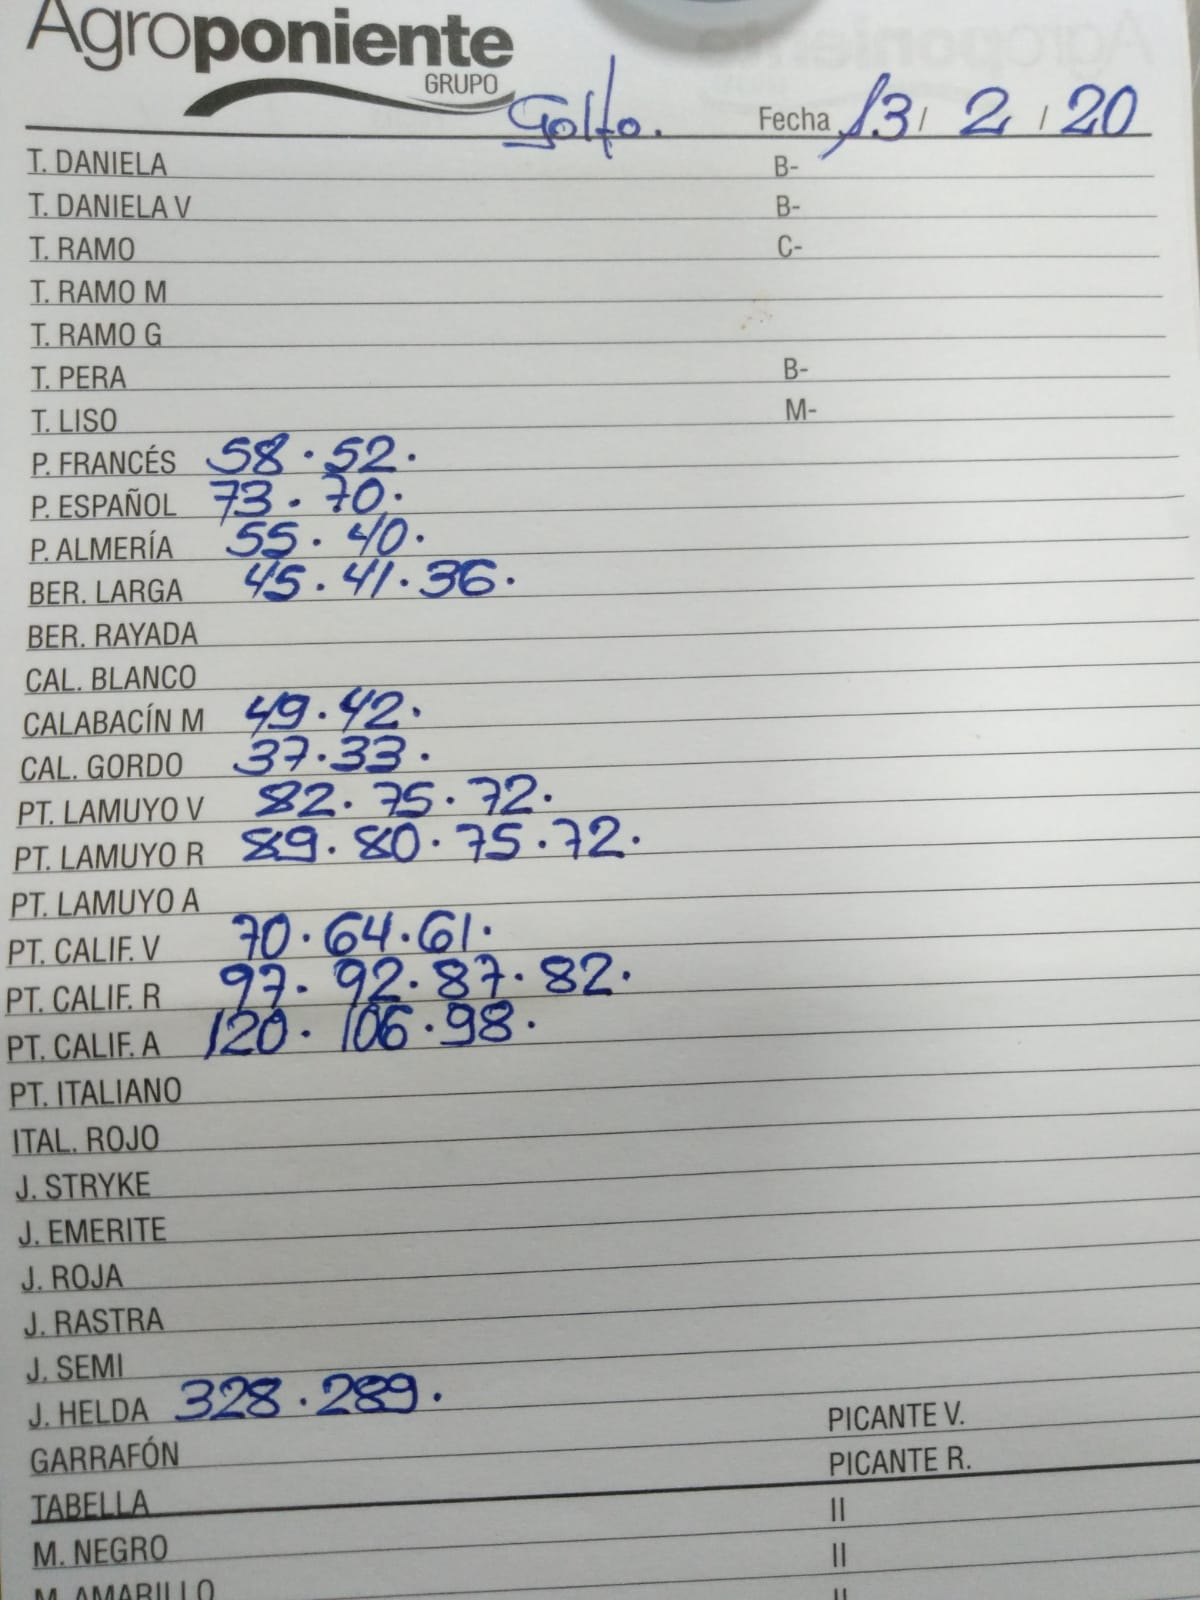 Agroponiente
GRUPO
Golfo. Fecha 13 / 2 / 20
T. DANIELA B-
T. DANIELA V B-
T. RAMO C-
T. RAMO M
T. RAMO G
T. PERA B-
T. LISO M-
P. FRANCÉS 58 · 52 ·
P. ESPAÑOL 73 · 70 ·
P. ALMERÍA 55 · 40 ·
BER. LARGA 45 · 41 · 36 ·
BER. RAYADA
CAL. BLANCO
CALABACÍN M 49 · 42 ·
CAL. GORDO 37 · 33 ·
PT. LAMUYO V 82 · 75 · 72 ·
PT. LAMUYO R 89 · 80 · 75 · 72 ·
PT. LAMUYO A
PT. CALIF. V 70 · 64 · 61 ·
PT. CALIF. R 97 · 92 · 87 · 82 ·
PT. CALIF. A 120 · 106 · 98 ·
PT. ITALIANO
ITAL. ROJO
J. STRYKE
J. EMERITE
J. ROJA
J. RASTRA
J. SEMI
J. HELDA 328 · 289 ·
GARRAFÓN PICANTE V.
TABELLA PICANTE R.
M. NEGRO II
M. AMARILLO II
II